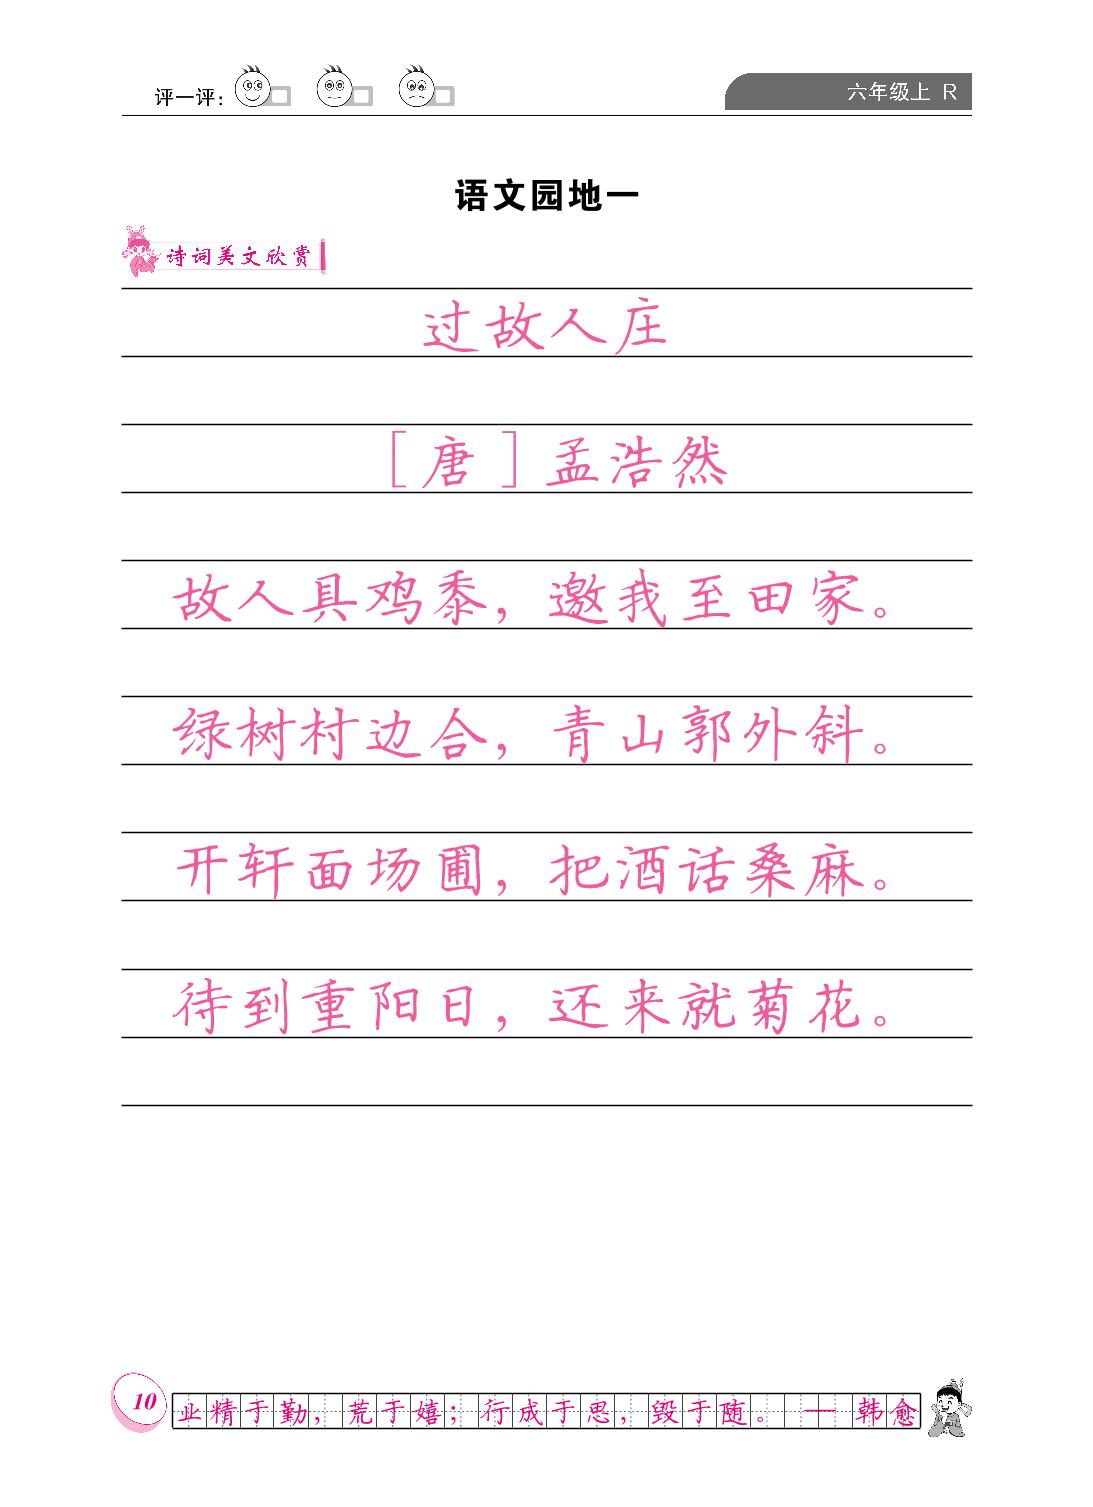 评一评：
六年级上 R
语文园地一
诗词美文欣赏
过故人庄
［唐］孟浩然
故人具鸡黍，邀我至田家。
绿树村边合，青山郭外斜。
开轩面场圃，把酒话桑麻。
待到重阳日，还来就菊花。
10
业精于勤，荒于嬉；行成于思，毁于随。 — 韩愈